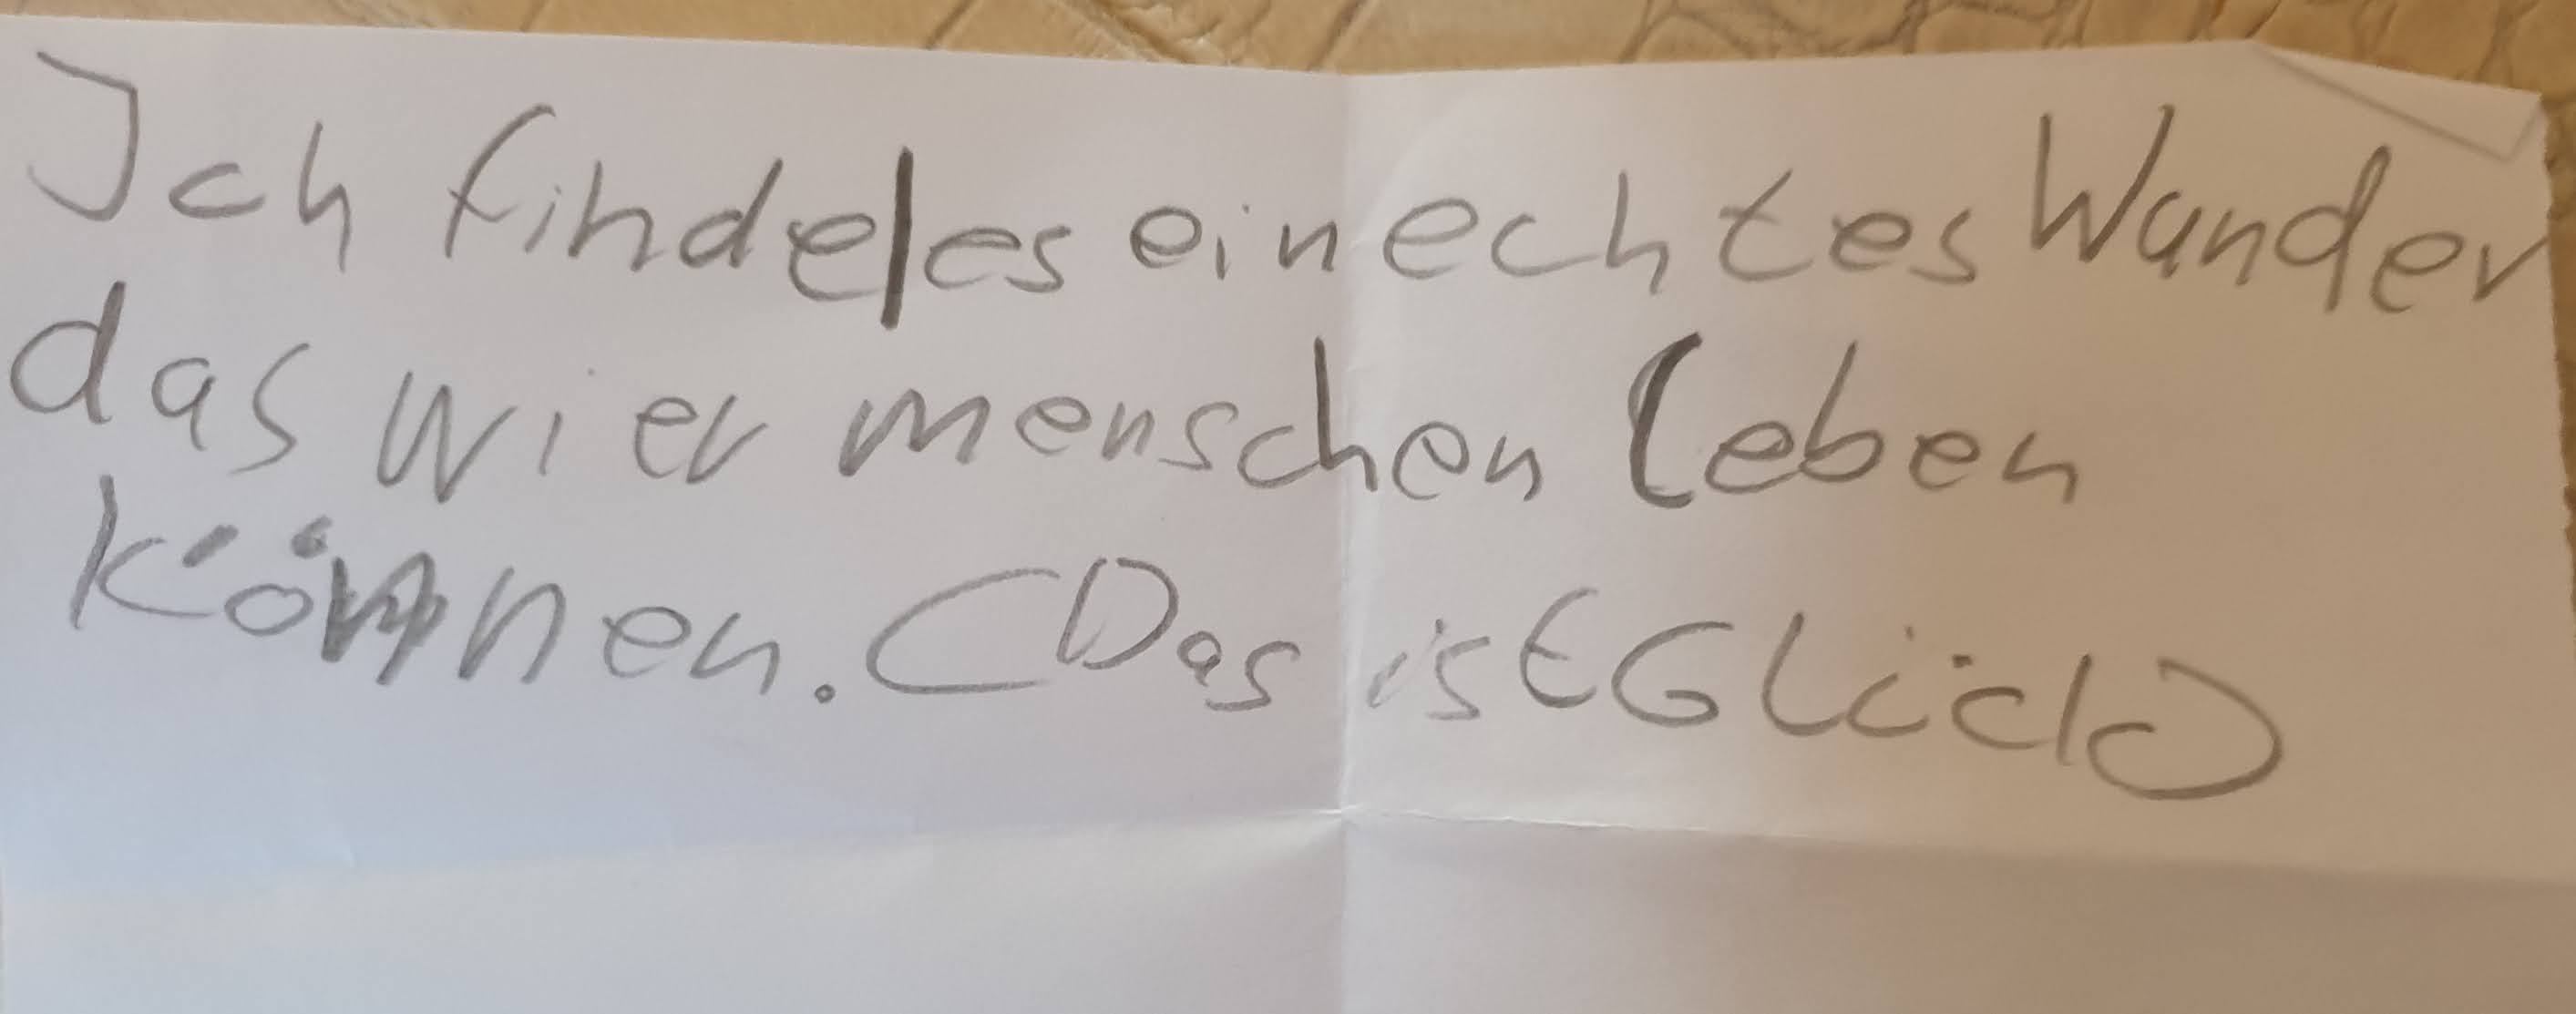 Ich finde|es ein echtes Wunder
das wier menschen leben
können. (Das ist Glück)